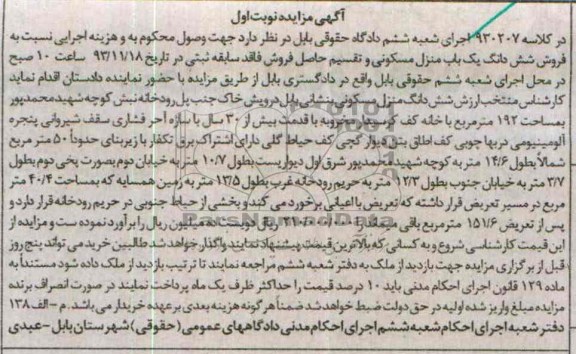 آگهی مزایده نوبت اول
در کلاسه ۹۳۰۲۰۷ اجرای شعبه ششم دادگاه حقوقی بابل در نظر دارد جهت وصول محکوم به و هزینه اجرایی نسبت به
فروش شش دانگ یک باب منزل مسکونی و تقسیم حاصل فروش فاقد سابقه ثبتی در تاریخ ۹۳/۱۱/۱۸ ساعت ۱۰ صبح
در محل اجرای شعبه ششم حقوقی بابل واقع در دادگستری بابل از طریق مزایده با حضور نماینده دادستان اقدام نماید
کارشناس منتخب ارزش شش دانگ منزل مسکونی بنشانی بابل درویش خاک جنب پل رودخانه نبش کوچه شهید محمدپور
بمساحت ۱۹۲ مترمربع با خانه کف کرسیدار مخروبه با قدمت بیش از ۳۰ سال با سازه آجر فشاری سقف شیروانی پنجره
آلومینیومی دربها چوبی کف اطاق بتن دیوار گچی کف حیاط گلی دارای اشتراک برق تکفاز با زیربنای حدوداً ۵۰ متر مربع
شمالاً بطول ۱۴/۶ متر به کوچه شهید احمدپور شرق اول دیواریست بطول ۱۰/۷ متر به خیابان دوم بصورت پخی دوم بطول
۳/۷ متر به خیابان جنوب بطول ۱۲/۳ متر به حریم رودخانه غرب بطول ۱۳/۵ متر به زمین همسایه که بمساحت ۴۰/۴ متر
مربع در مسیر تعریض قرار داشته که تعریض با اعیانی برخورد می کند و بخشی از حیاط جنوبی در حریم رودخانه قرار دارد و
پس از تعریض ۱۵۱/۶ مترمربع باقی میماند از ریال دویست ده میلیون ریال را برآورد نموده ست و مزایده از
این قیمت کارشناسی شروع و به کسانی که بالاترین قیمت پیشنهاد نمایند واگذار خواهد شد طالبین خرید می تواند پنج روز
قبل از برگزاری مزایده جهت بازدید از ملک به دفتر شعبه ششم مراجعه نمایند تا ترتیب بازدید از ملک داده شود مستنداً به
ماده ۱۲۹ قانون اجرای احکام مدنی باید ۱۰ درصد قیمت را حداکثر ظرف یک ماه پرداخت نمایند در صورت انصراف برنده
مزایده مبلغ واریز شده اولیه در حق دولت ضبط خواهد شد ضمناً هر گونه هزینه بعدی بر عهده خریدار می باشد. م-الف ۱۳۸
دفتر شعبه اجرای احکام شعبه ششم اجرای احکام مدنی دادگاههای عمومی (حقوقی) شهرستان بابل - عبدی